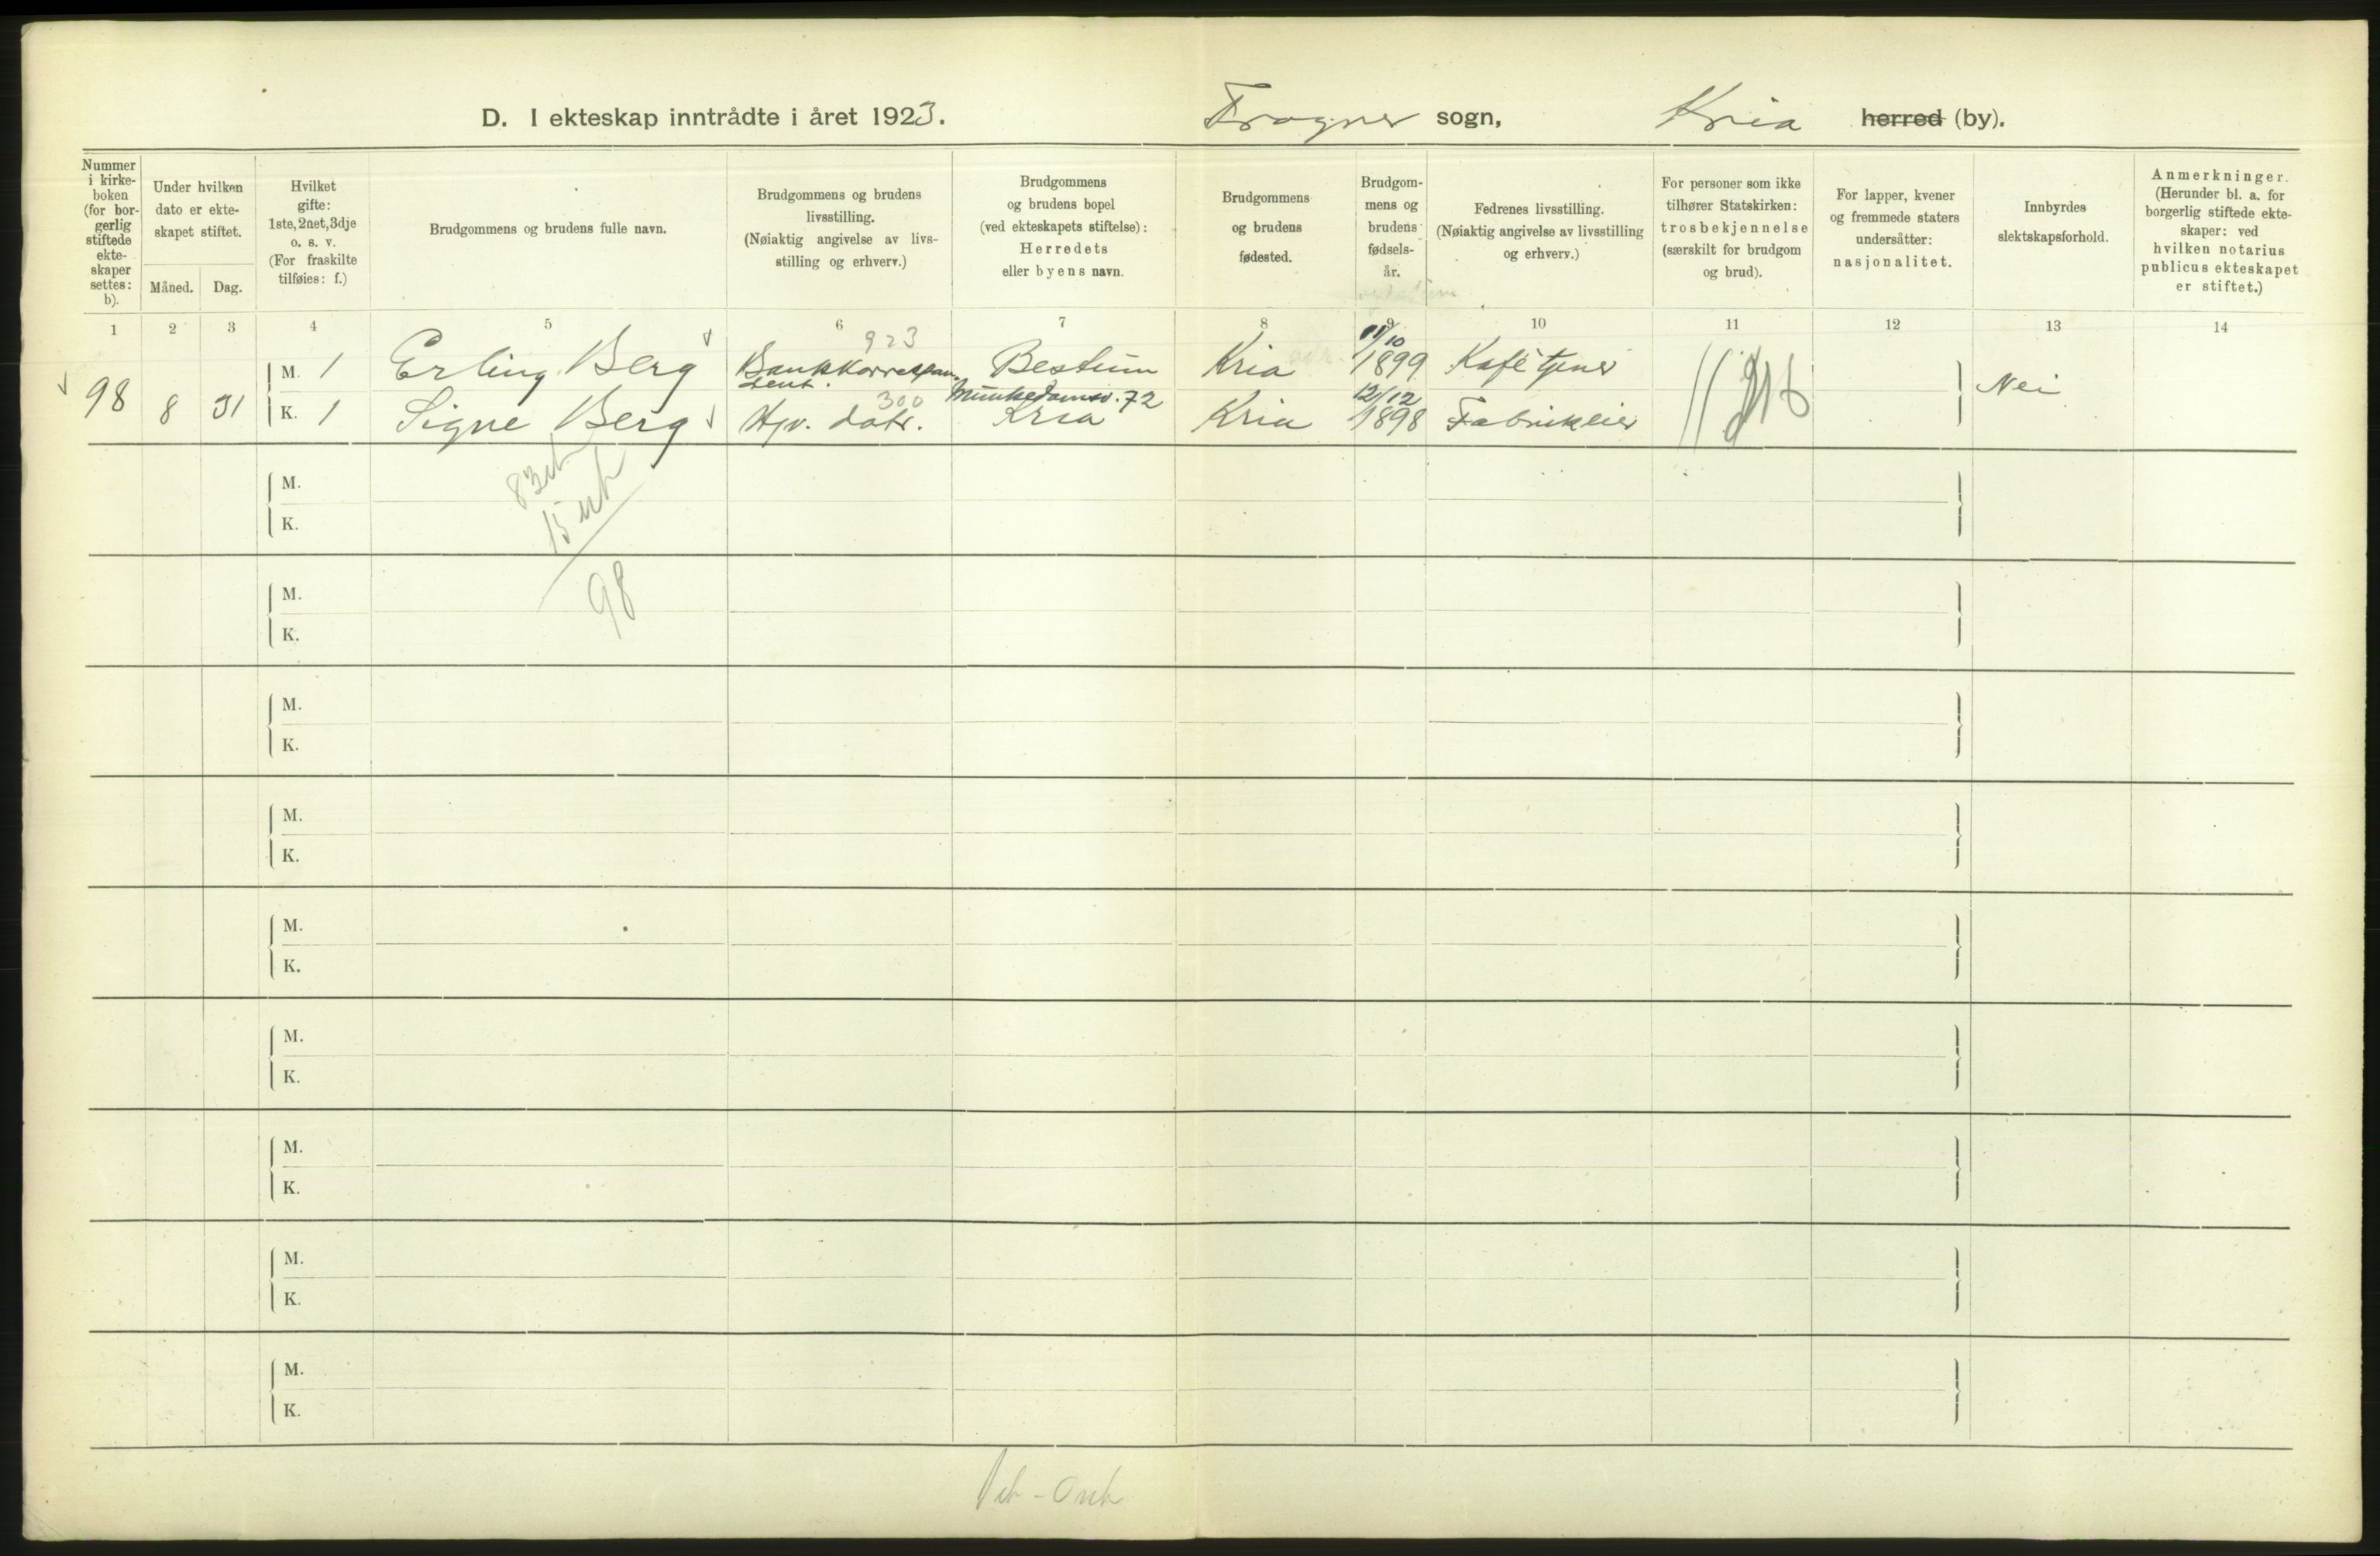 D. I ekteskap inntrådte i året 1923. Frogner sogn, Kria herred (by).
Nummer
i kirke-
boken
(for bor-
gerlig
stiftede
ekte-
skaper
settes:
b).
Under hvilken
dato er ekte-
skapet stiftet.
Måned. Dag.
Hvilket
gifte:
1ste, 2net, 3dje
o. s. v.
(For fraskilte
tilføies: f.)
Brudgommens og brudens fulle navn.
Brudgommens og brudens
livsstilling.
(Nøiaktig angivelse av livs-
stilling og erhverv.)
Brudgommens
og brudens bopel
(ved ekteskapets stiftelse):
Herredets
eller byens navn.
Brudgommens
og brudens
fødested.
Brudgom-
mens og
brudens
fødsels-
år.
Fedrenes livsstilling.
(Nøiaktig angivelse av livsstilling
og erhverv.)
For personer som ikke
tilhører Statskirken:
trosbekjennelse
(særskilt for brudgom
og brud).
For lapper, kvener
og fremmede staters
undersåtter:
nasjonalitet.
Innbyrdes
slektskapsforhold.
Anmerkninger.
(Herunder bl. a. for
borgerlig stiftede ekte-
skaper: ved
hvilken notarius
publicus ekteskapet
er stiftet.)
1 2 3 4 5 6 7 8 9 10 11 12 13 14
923
11/10
M. 1 Erling Berg Bankkorrespon- Bestum Kria 1899 Kafétjener
dent.
98 8 31 Nei
300 Munkedamsv. 72 12/12
K. 1 Signe Berg Hjv. datr. Kria Kria 1898 Fabrikeier
83 ub
M.
15 ub
K.
98
M.
K.
M.
K.
M.
K.
M.
K.
M.
K.
M.
K.
M.
K.
M.
K.
1 ub - 0 ub